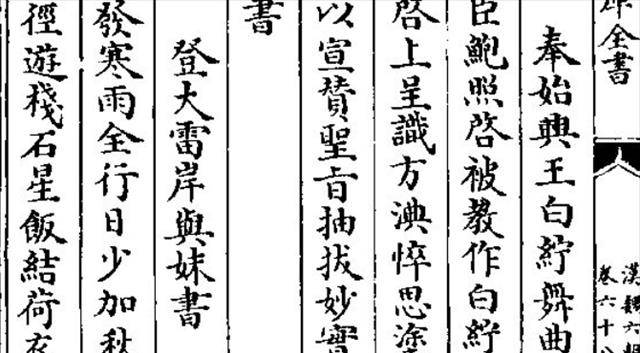 全書
漢魏六
卷六十八
奉始興王白紵舞曲
臣鮑照啓被教作白紵
啓上呈識方淟悴思塗
以宣贊聖旨抽拔妙實
書
登大雷岸與妹書
發寒雨全行日少加秋
徑遊棧石星飯結荷衣